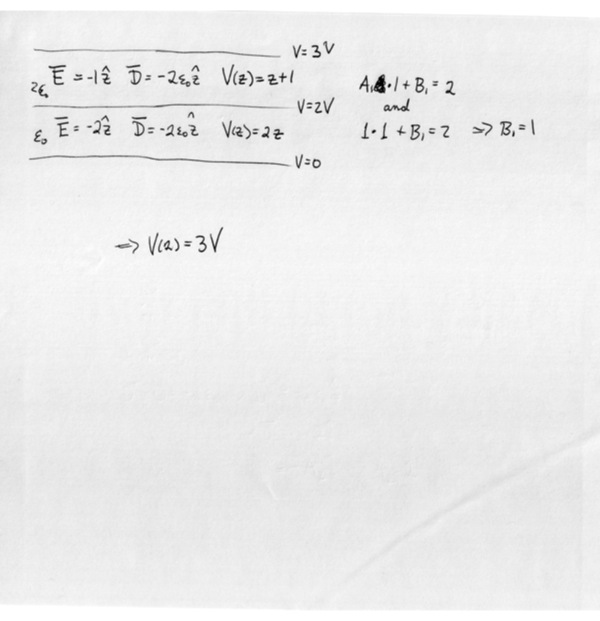 V=3V
2ε₀ E̅ = -1ẑ D̅ = -2ε₀ẑ V(z)=z+1
V=2V
ε₀ E̅ = -2ẑ D̅ = -2ε₀ẑ V(z)=2z
V=0
A₁·1+B₁=2
and
1·1+B₁=2 ⇒ B₁=1
⇒ V(2)=3V